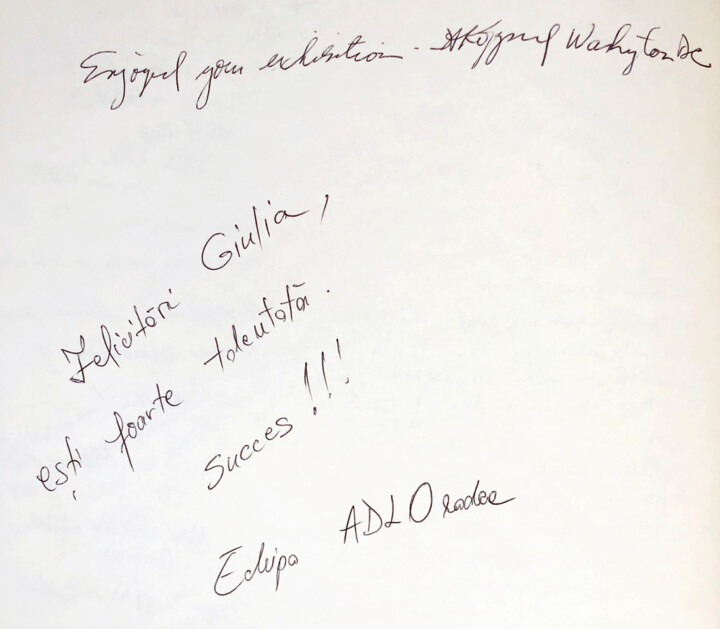 Enjoyed your exhibition. Washington DC
Felicitări Giulia,
ești foarte talentată.
Succes!!!
Echipa ADLOradea